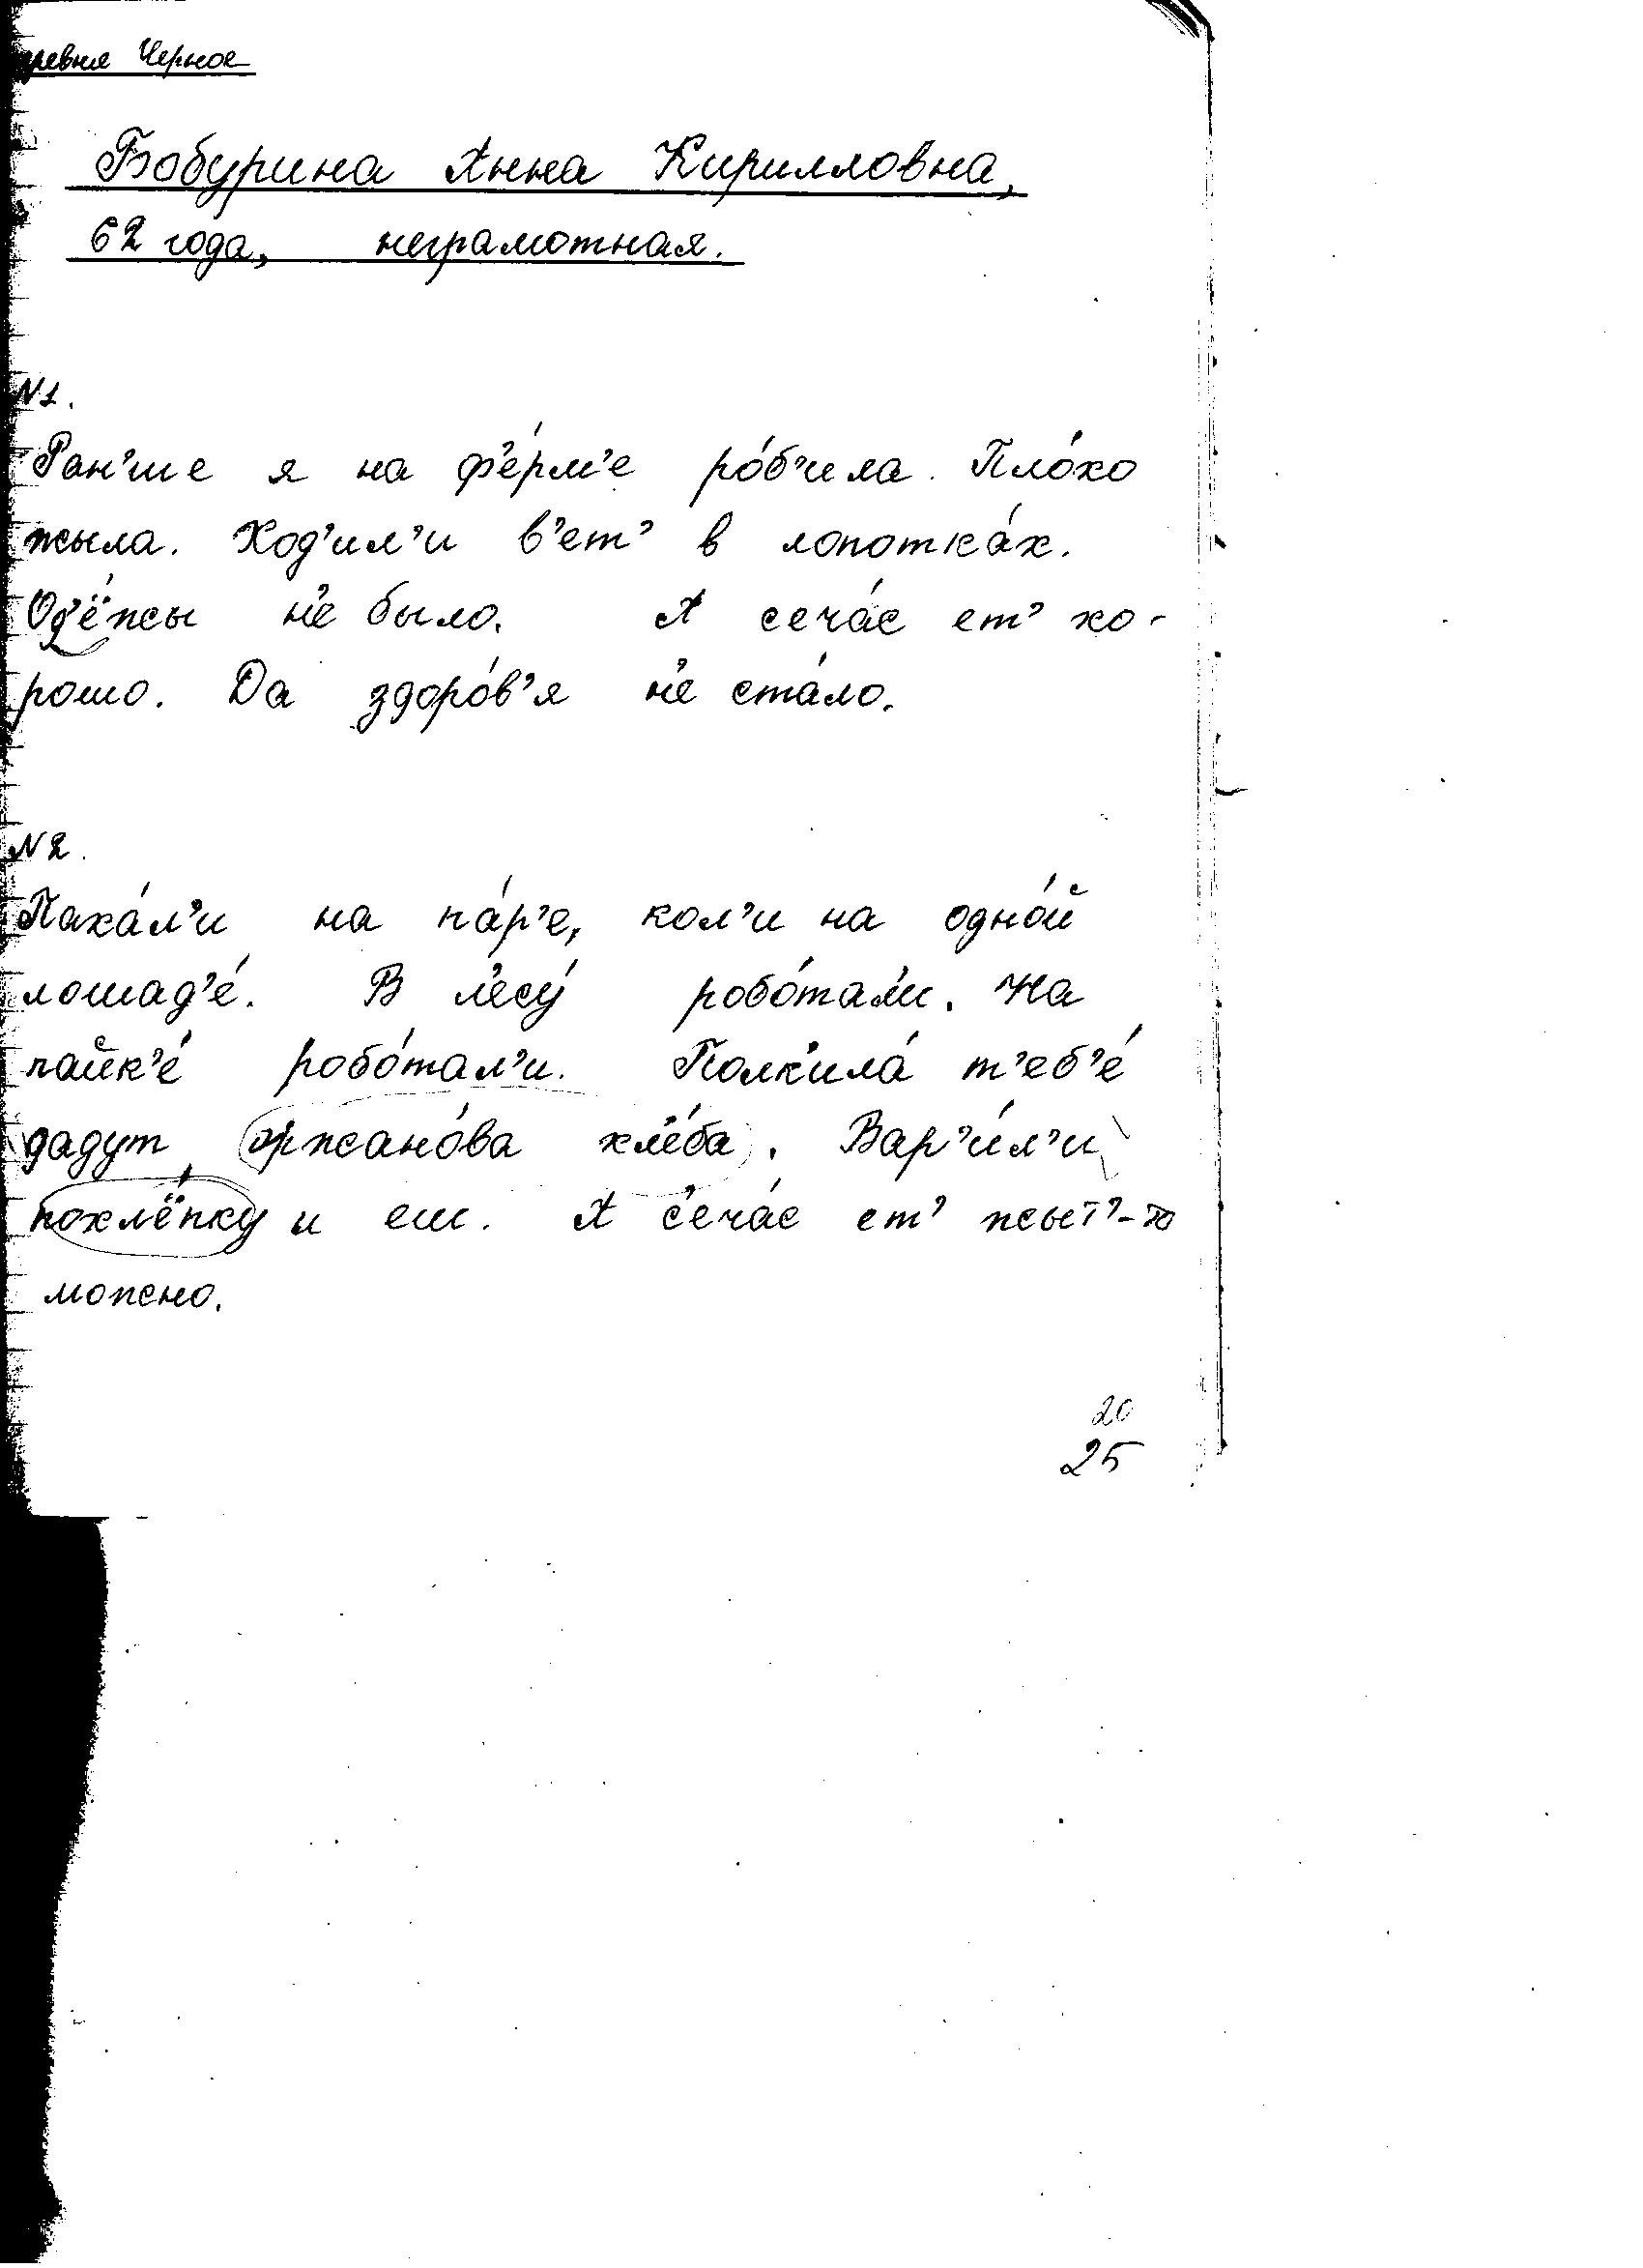 деревня Черное
Бобурина Анна Кирилловна,
62 года, неграмотная.
N1.
Ран'ше я на ф'е́рм'е ро́б'ила. Пло́хо
жыла. Ход'ил'и в'ет' в лопотка́х.
Од'ё́жы н'е было. А сеча́с ет' хо-
рошо. Да здоро́в'я н'е ста́ло.
N2.
Паха́л'и на па́р'е, кол'и на одно́й
лошад'е́. В л'есу́ робо́тал'и. На
пайк'е́ робо́тал'и. Полк'ила́ т'еб'е́
дадут оржано́ва хл'е́ба. Вар'и́л'и
похл'ё́пку и еш. А с'еча́с ет' жыт'-то
можно.
20
25